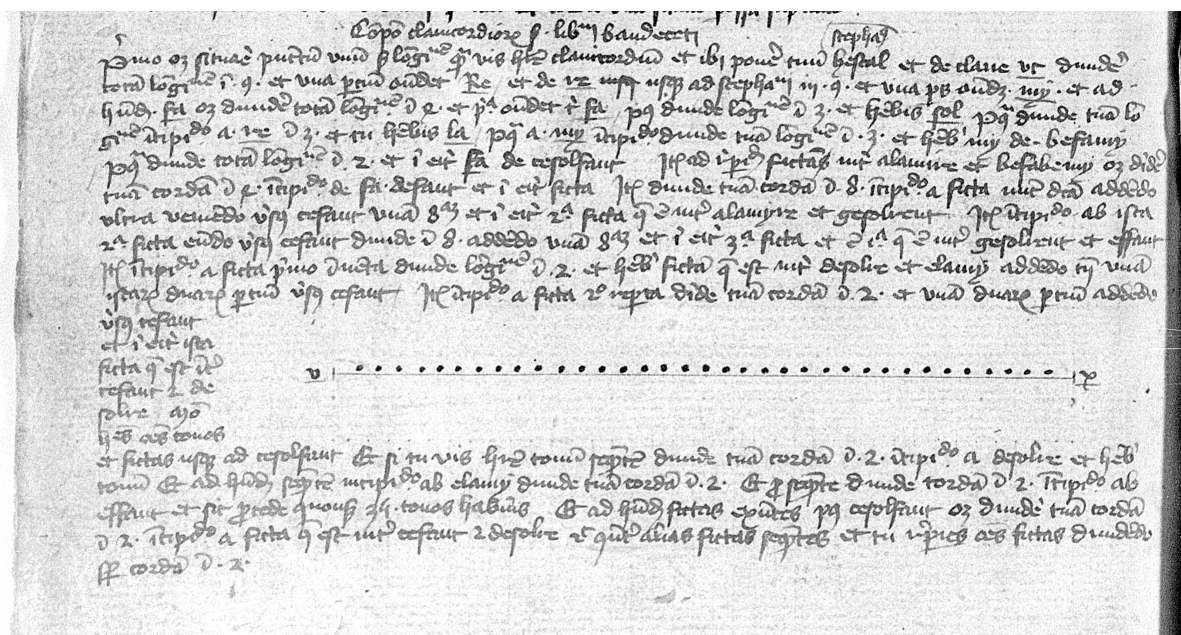 Compo clavicordiorum secundum librum baudeceti
stephan
Primo oportet situare punctum unum secundum longitudinem quam vis habere clavicordium et ibi ponere tuum bestal et de clave ut dividere
totam longitudinem in .9. et una partium ostendet Re / et de re usque ad stephanum in .9. et una pars ostendet my . et ad
habendum fa oportet dividere totam longitudinem in 4 et prima ostendet tibi fa / post divide longitudinem in 3 . et habebis sol postea divide tuam lon
gitudinem incipiendo a . re in 3 . et tu habebis la / postea a . my incipiendo divide tuam longitudinem in . 3 . et habebis my de befamy
postea divide totam longitudinem in . 2 . et ibi erit fa de cesolfaut Item ad reperiendum fictam inter alamire et befabemy oportet dividere
tuam cordam in 4 . incipiendo de fa . defaut et ibi erit ficta Item divide tuam cordam in . 8 . incipiendo a ficta inter dictam addendo
ultra veniendo versus cefaut unam 8am et ibi erit 2a ficta que est inter alamyre et gesolreut Item incipiendo ab ista
2a ficta eundo versus cefaut divide in 8 . addendo unam 8am et ibi erit 3a ficta et est illa que est inter gesolreut et effaut
Item incipiendo a ficta primo inventa divide longitudinem in . 2 . et habebis fictam que est inter desolre et elamy addendo tamen unam
istarum duarum partium versus cefaut / Item incipiendo a ficta 2o reperta divide tuam cordam in . 2 . et unam duarum partium addendo
versus cefaut
et ibi erit ista
ficta que est inter
cefaut 2 de
solre modo
habes omnes tonos
v
et fictas usque ad cesolfaut Et si tu vis habere tonum sequentem divide tuam cordam in . 2 . incipiendo a desolre et habebis
tonum Et ad habendum sequentem incipiendo ab elamy divide tuam cordam in . 2 . Et pro sequente divide cordam in 2 . incipiendo ab
effaut et sic procede quousque tonos habueris Et ad habendum fictas existentes post cesolfaut oportet dividere tuam cordam
in 2 . incipiendo a ficta que est inter cefaut 2 desolre alias fictas sequentes et tu reperies omnes fictas dividendo
semper cordam in . 2 .